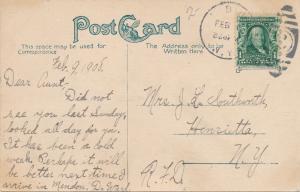 Post Card
This space may be used for
Correspondence
The Address only to be
Written here
FEB
Feb. 9, 1908.
Dear Aunt:
Did not
see you last Sunday,
looked all day for you.
It has been a cold
week. Perhaps it will
be better next time I
arrive in Mendon, D. Ward
Mrs. J. L. Southworth,
Henrietta,
N. Y.
R. F. D